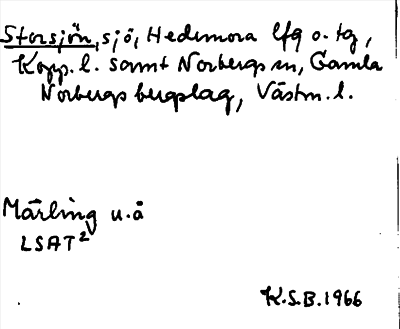 Storsjön, sjö, Hedemora lfg o. tg,
Kopp. l. samt Norbergs sn, Gamla
Norbergs bergslag, Västm. l.
Märling u.å
LSAT2
K.S.B. 1966